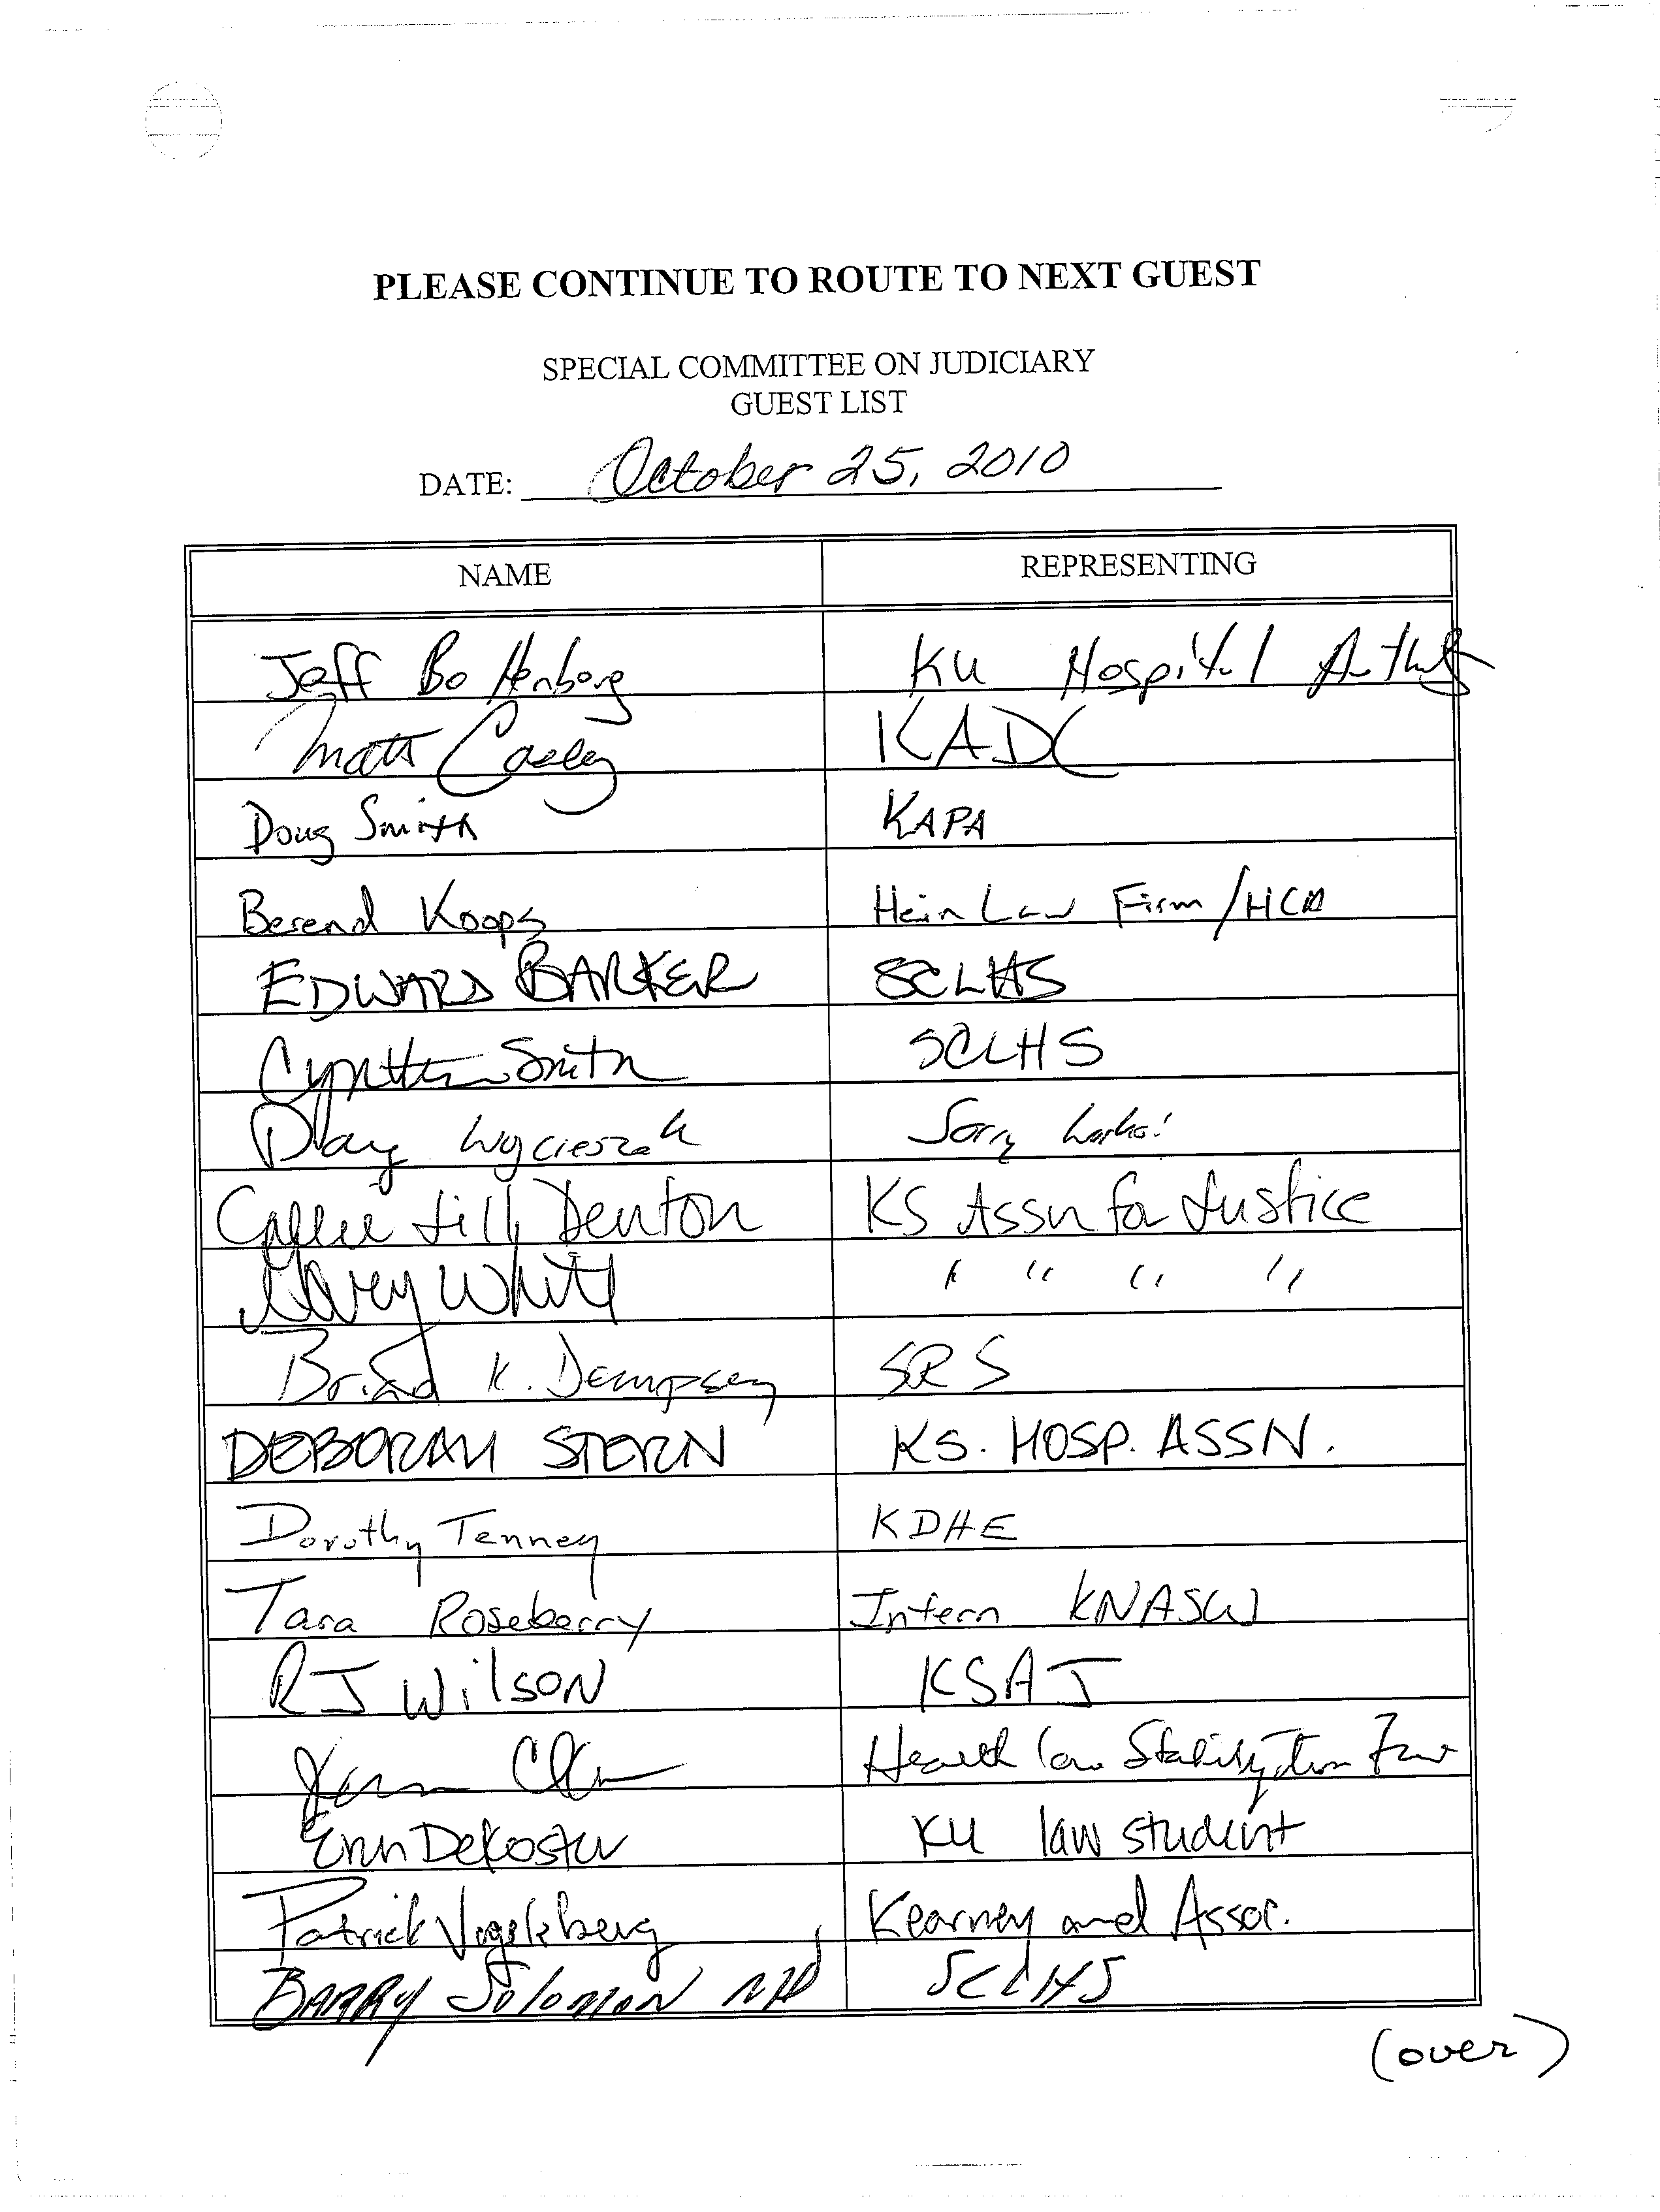 PLEASE CONTINUE TO ROUTE TO NEXT GUEST
SPECIAL COMMITTEE ON JUDICIARY
GUEST LIST
DATE: October 25, 2010
NAME REPRESENTING
Jeff Bottenberg KU Hospital
Matt Casey KADC
Doug Smith KAPA
Berend Koops Hein Law Firm/HCM
EDWARD BARKER SCLHS
Cynthia Smith SCLHS
Doug Wojcieszak Sorry Works!
Callie Jill Denton KS Assn for Justice
White " " " "
Brian K. Dempsey SRS
DEBORAH STERN KS. HOSP. ASSN.
Dorothy Tenney KDHE
Tara Roseberry Intern KNASW
RJ WILSON KSAJ
Health Care Stabilization Fund
Erin DeKoster KU law student
Patrick Vogelsberg Kearney and Assoc.
BARRY SOLOMON MD SCLHS
(over)